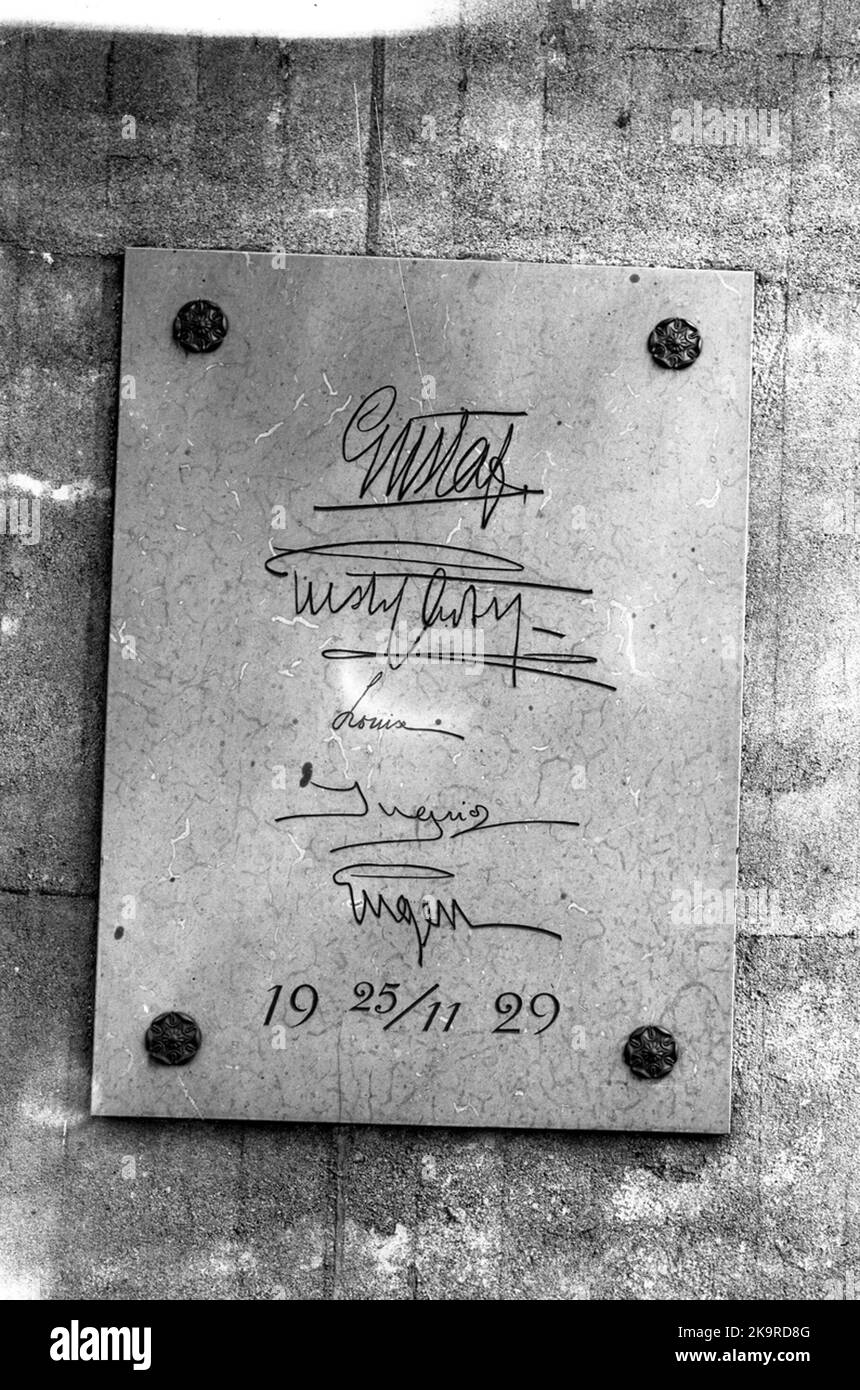 Gustaf
Gustaf Adolf
Louise
Ingrid
Eugen
19 25/11 29
alamy
Image ID: K9RD8G
www.alamy.com